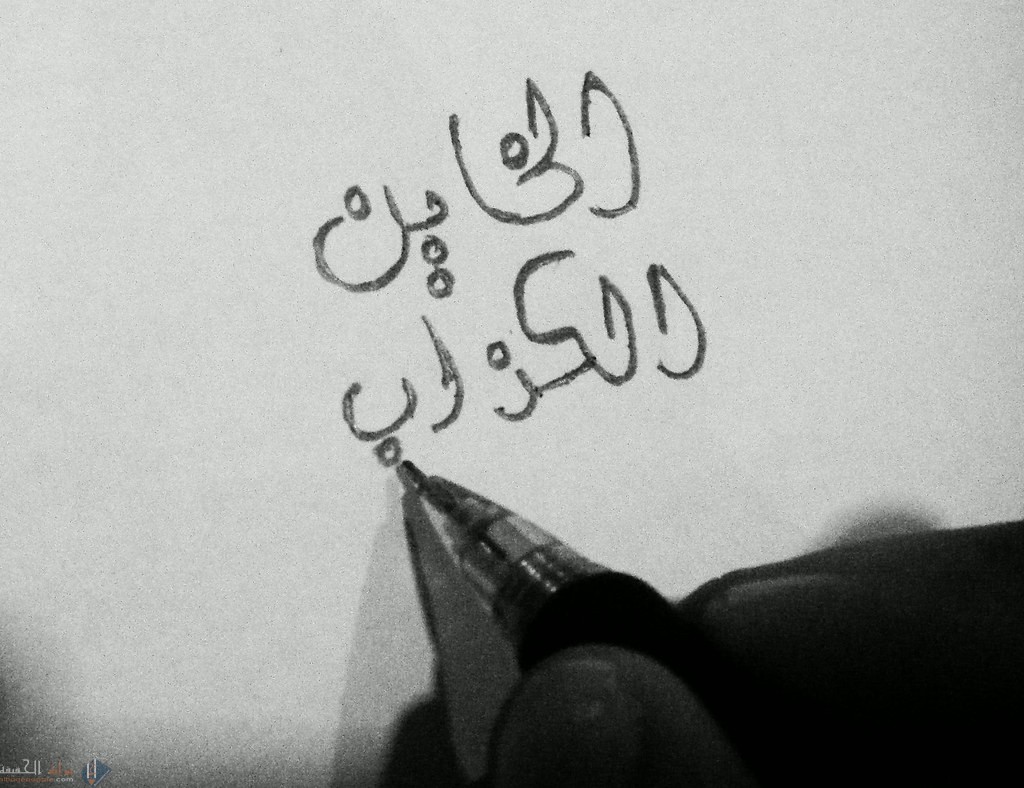 الخاين
الكزاب